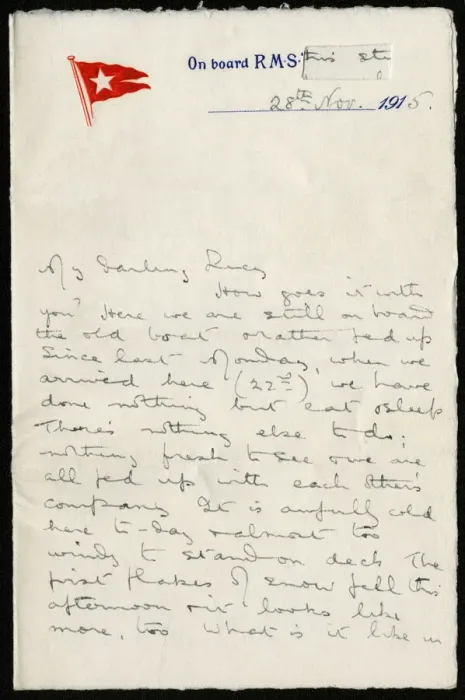 On board R.M.S. this ste
28th Nov. 1915.
My darling Lucy
How goes it with
you? Here we are still on board
the old boat & rather fed up
Since last Monday, when we
arrived here (22nd), we have
done nothing but eat & sleep
There's nothing else to do;
nothing fresh to see & we are
all fed up with each other's
company It is awfully cold
here to-day & almost too
windy to stand on deck The
first flakes of snow fell this
afternoon & it looks like
more, too What is it like in